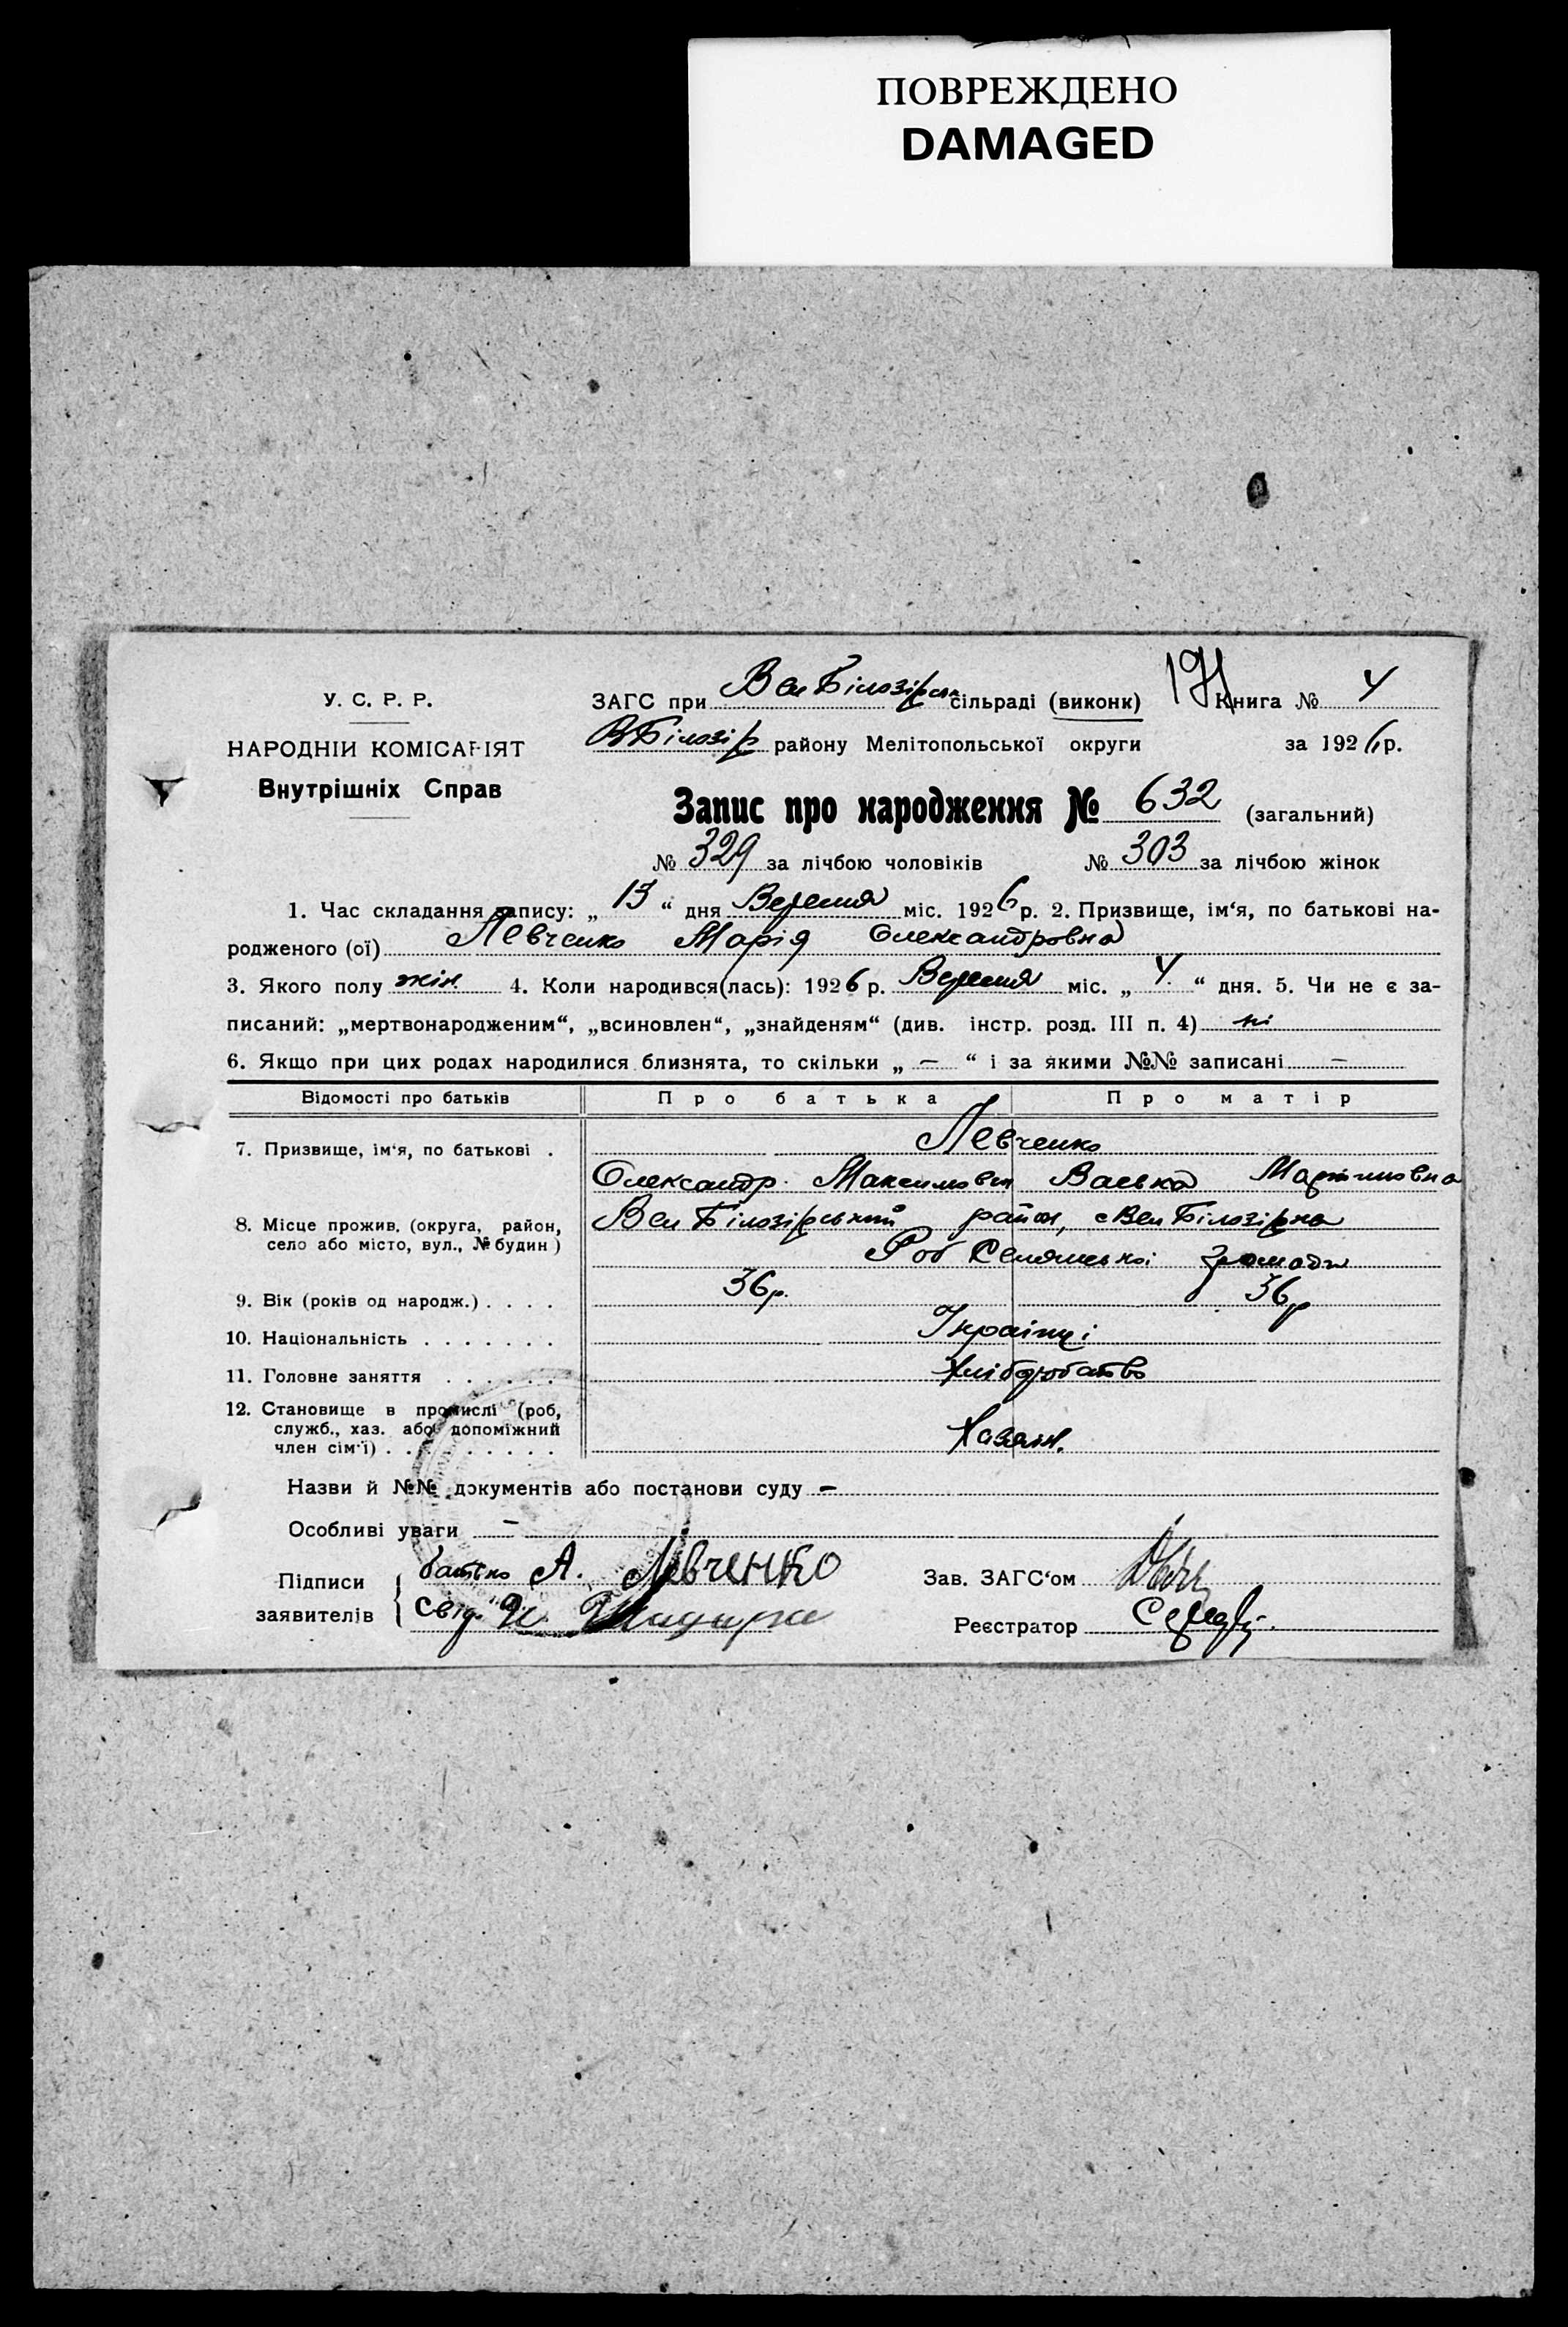 ПОВРЕЖДЕНО
DAMAGED
У. С. Р. Р.
НАРОДНІЙ КОМІСАРІЯТ
Внутрішніх Справ
ЗАГС при Вел Білозірськ сільраді (виконк) Книга № 4
ВБілозір району Мелітопольської округи за 1926 р.
Запис про народження № 632 (загальний)
№ 329 за лічбою чоловіків № 303 за лічбою жінок
1. Час складання запису: „ 13 “ дня Вересня міс. 1926 р. 2. Призвище, ім‘я, по батькові на-
родженого (ої) Левченко Марія Олександровна
3. Якого полу жін. 4. Коли народився(лась): 1926 р. Вересня міс. „ 4. “ дня. 5. Чи не є за-
писаний: „мертвонародженим“, „всиновлен“, „знайденям“ (див. інстр. розд. III п. 4) ні
6. Якщо при цих родах народилися близнята, то скільки „ — “ і за якими №№ записані —
Відомості про батьків Про батька Про матір
7. Призвище, ім‘я, по батькові . Левченко
Олександр Максимович Васька Мартиновна
8. Місце прожив. (округа, район, Вел Білозірський район, с Вел Білозірка
село або місто, вул., № будин) Роб Селянської громади
9. Вік (років од народж.) . . . . 36р. 36р
10. Національність . . . . . . . Українці
11. Головне заняття . . . . . . Хліборобство
12. Становище в промислі (роб,
служб., хаз. або допоміжний
член сім‘ї) . . . . . . . . . Хазяін.
Назви й №№ документів або постанови суду —
Особливі уваги —
Підписи батько А. Левченко Зав. ЗАГС‘ом
заявителів свід. Реєстратор